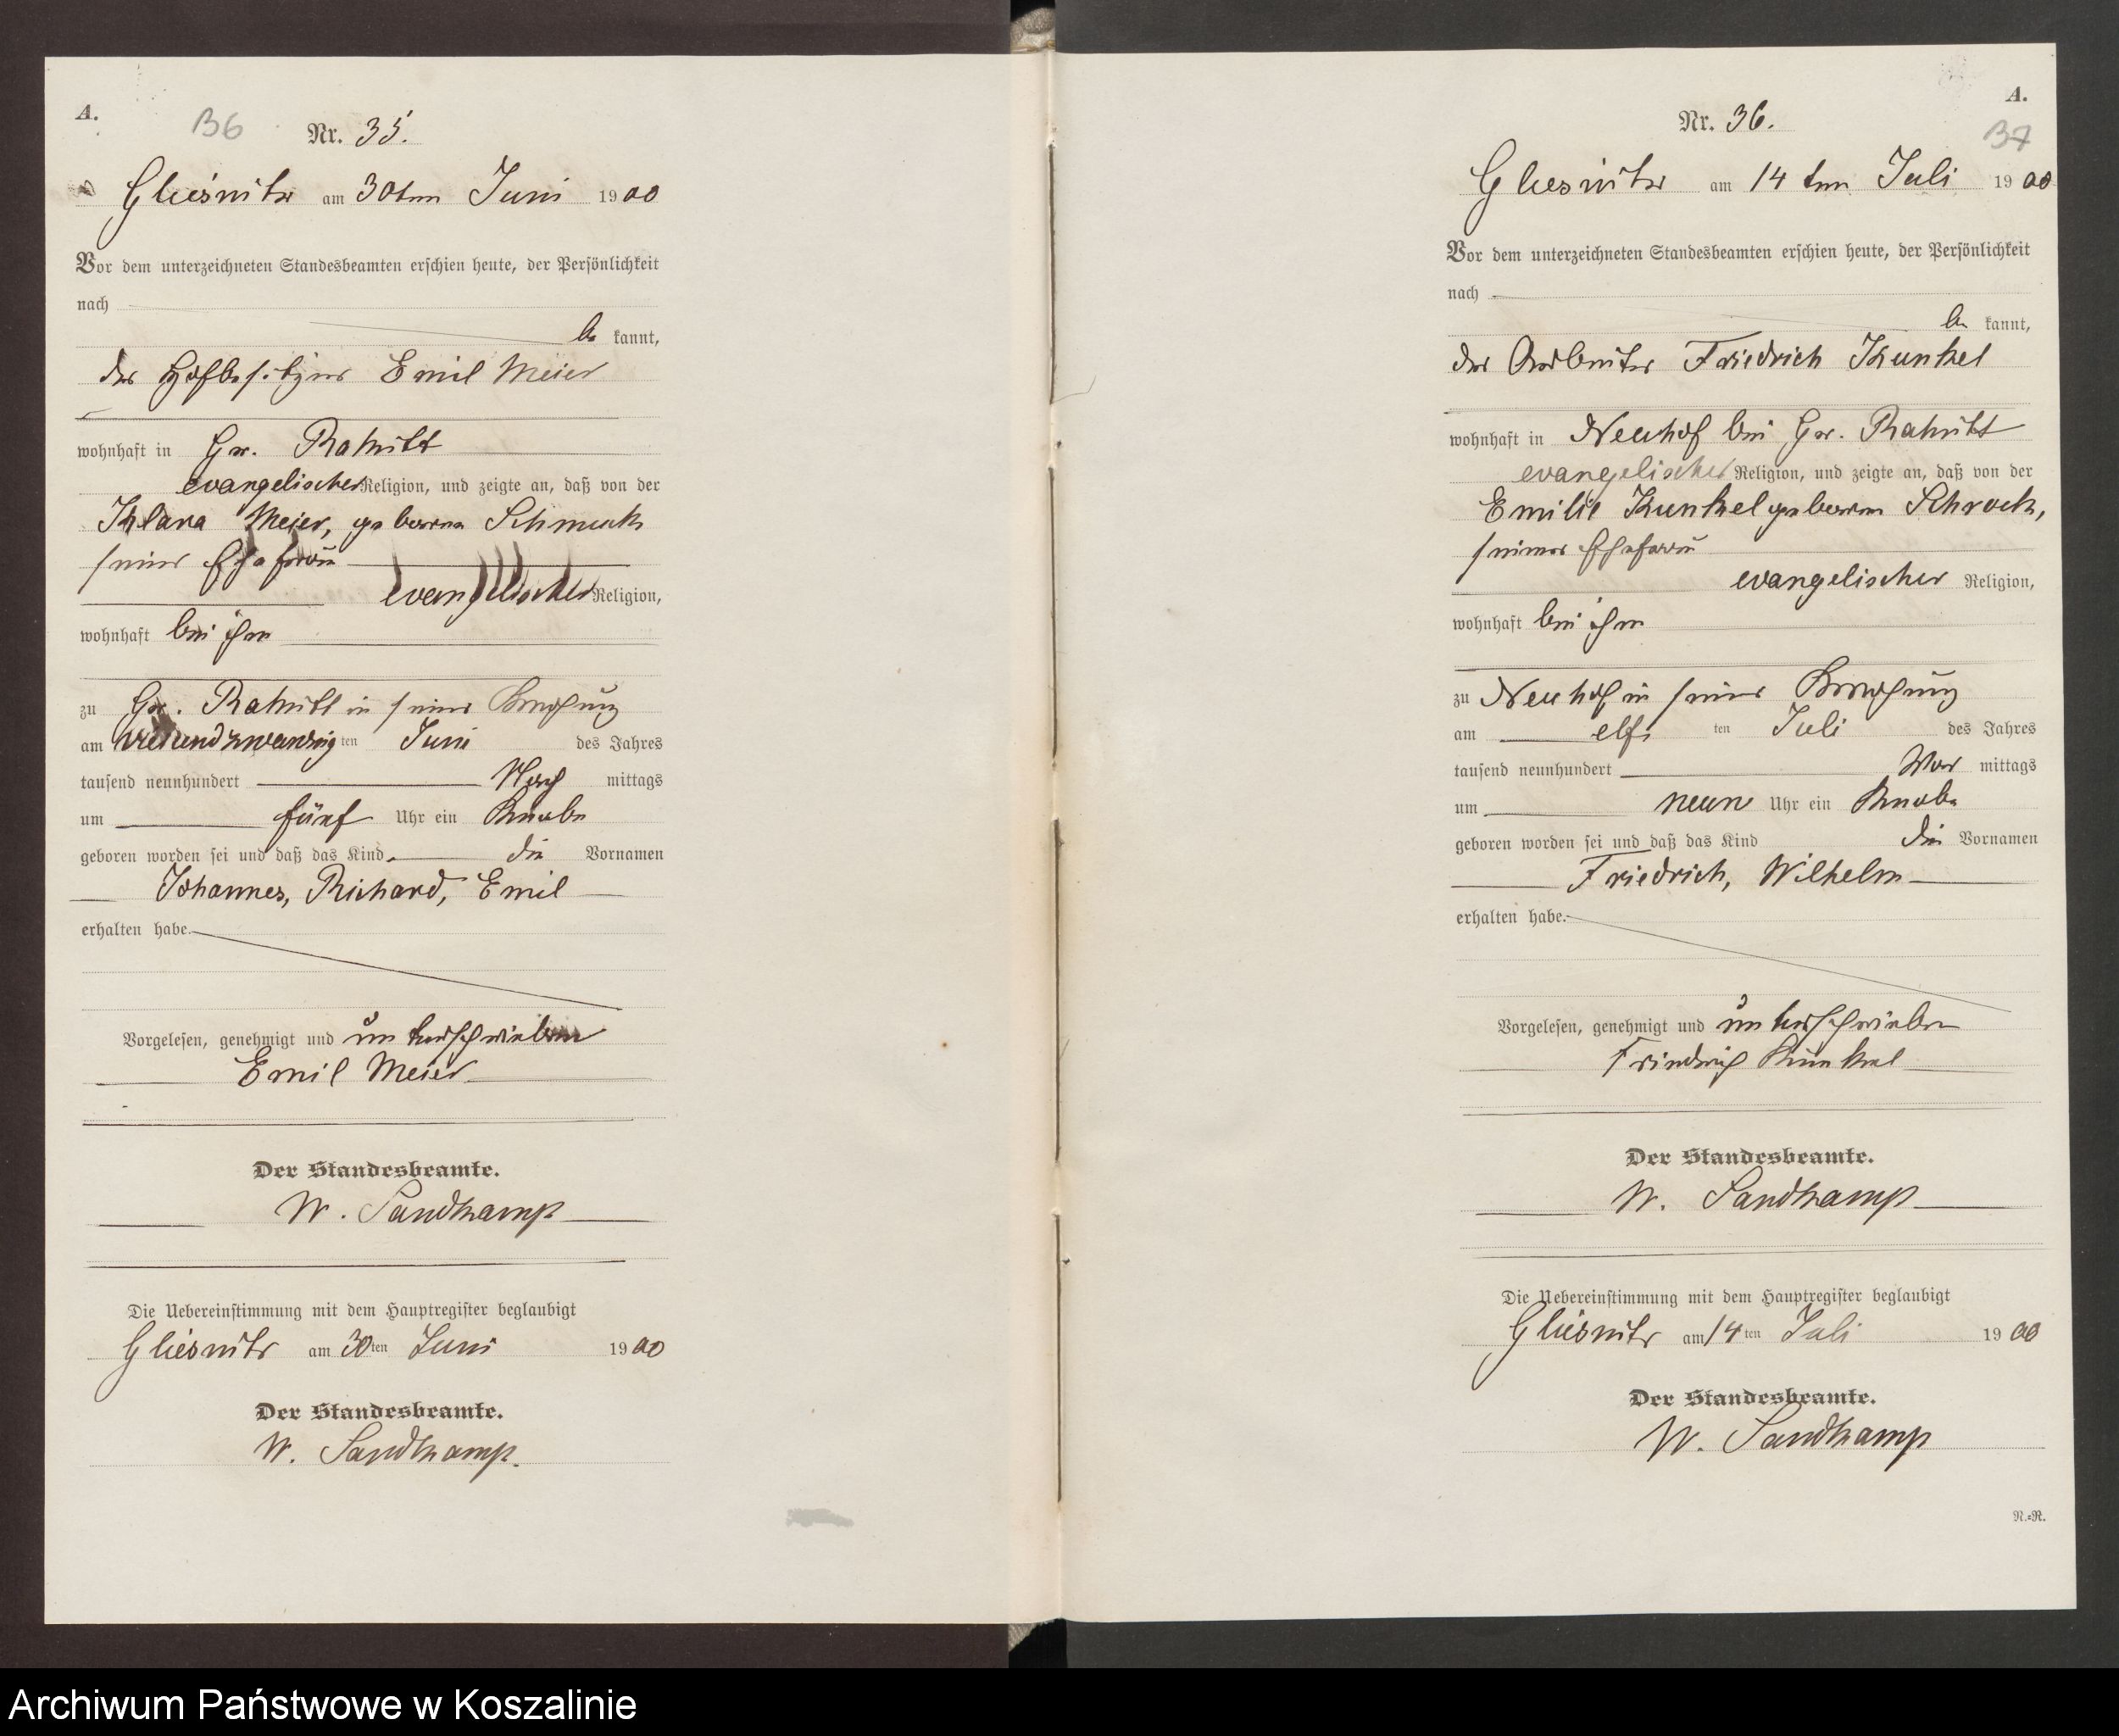 A.
B6
Nr. 35.
Gliesnitz am 30ten Juni 1900
Vor dem unterzeichneten Standesbeamten erschien heute, der Persönlichkeit
nach
be kannt,
der Hofbesitzer Emil Meier
wohnhaft in Gr. Rakitt
evangelischer Religion, und zeigte an, daß von der
Klara Meier, geborne Schmuck
seiner Ehefrau
evangelischer Religion,
wohnhaft bei ihm
zu Gr. Rakitt in seiner Behausung
am vierundzwanzig ten Juni des Jahres
tausend neunhundert Nach mittags
um fünf Uhr ein Knabe
geboren worden sei und daß das Kind die Vornamen
Johannes, Richard, Emil
erhalten habe.
Vorgelesen, genehmigt und unterschrieben
Emil Meier
Der Standesbeamte.
W. Sandkamp
Die Uebereinstimmung mit dem Hauptregister beglaubigt
Gliesnitz am 30ten Juni 1900
Der Standesbeamte.
W. Sandkamp.
A.
B7
Nr. 36.
Gliesnitz am 14ten Juli 1900
Vor dem unterzeichneten Standesbeamten erschien heute, der Persönlichkeit
nach
be kannt,
der Arbeiter Friedrich Kunkel
wohnhaft in Neuhof bei Gr. Rakitt
evangelischer Religion, und zeigte an, daß von der
Emilie Kunkel geborne Schrock,
seiner Ehefrau
evangelischer Religion,
wohnhaft bei ihm
zu Neuhof in seiner Behausung
am elf ten Juli des Jahres
tausend neunhundert Vor mittags
um neun Uhr ein Knabe
geboren worden sei und daß das Kind die Vornamen
Friedrich, Wilhelm
erhalten habe.
Vorgelesen, genehmigt und unterschrieben
Friedrich Kunkel
Der Standesbeamte.
W. Sandkamp
Die Uebereinstimmung mit dem Hauptregister beglaubigt
Gliesnitz am 14ten Juli 1900
Der Standesbeamte.
W. Sandkamp
N.=R.
Archiwum Państwowe w Koszalinie